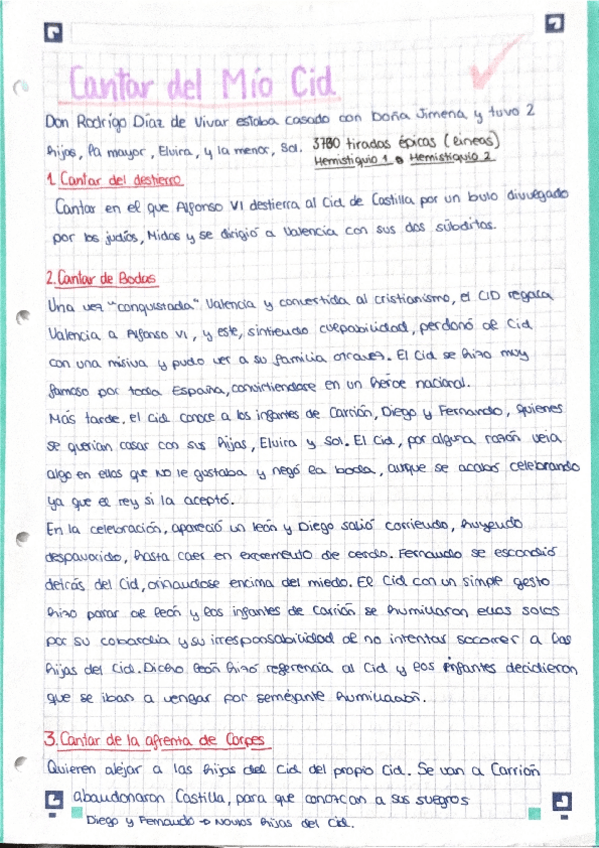 Cantar del Mío Cid
Don Rodrigo Díaz de Vivar estaba casado con Doña Jimena y tuvo 2
hijos, la mayor, Elvira, y la menor, Sol. 3730 tiradas épicas (líneas)
Hemistiquio 1 • Hemistiquio 2
1. Cantar del destierro
Cantar en el que Alfonso VI destierra al Cid de Castilla por un bulo divulgado
por los judíos, Midas y se dirigió a Valencia con sus dos súbditos.
2. Cantar de Bodas
Una vez "conquistada" Valencia y convertida al cristianismo, el CID regala
Valencia a Alfonso VI, y este, sintiendo culpabilidad, perdonó al Cid
con una misiva y pudo ver a su familia otra vez. El Cid se hizo muy
famoso por toda España, convirtiendose en un héroe nacional.
Más tarde, el Cid conoce a los infantes de Carrión, Diego y Fernando, quienes
se querían casar con sus hijas, Elvira y Sol. El Cid, por alguna razón veía
algo en ellos que no le gustaba y negó la boda, aunque se acabó celebrando
ya que el rey si la aceptó.
En la celebración, apareció un león y Diego salió corriendo, huyendo
despavorido, hasta caer en excremento de cerdo. Fernando se escondió
detrás del Cid, orinandose encima del miedo. El Cid con un simple gesto
hizo parar al león y los infantes de Carrión se humillaron ellos solos
por su cobardía y su irresponsabilidad al no intentar socorrer a las
hijas del Cid. Dicho león hizo referencia al Cid y los infantes decidieron
que se iban a vengar por semejante humillación.
3. Cantar de la afrenta de Corpes
Quieren alejar a las hijas del Cid del propio Cid. Se van a Carrión
abandonaron Castilla, para que conozcan a sus suegros
Diego y Fernando → Novios hijas del Cid.